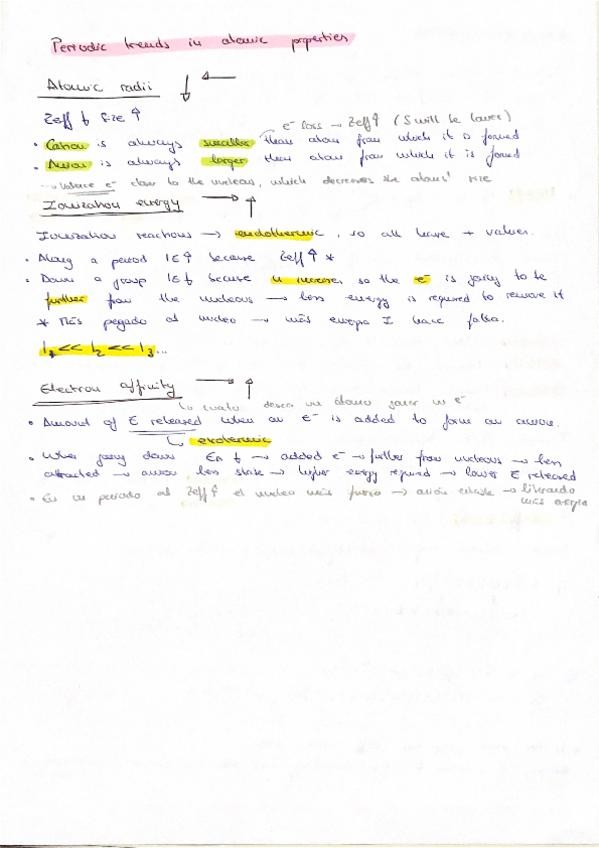 Periodic trends in atomic properties
Atomic radii ↓ ←
Zeff ↓ size ↑
e⁻ loss → Zeff ↑ (S will be lower)
• Cation is always smaller than atom from which it is formed
• Anion is always larger than atom from which it is formed
valence e⁻ closer to the nucleous, which decreases the atoms' size
Ionization energy → ↑
Ionization reactions → endothermic, so all have + values.
• Along a period IE ↑ because Zeff ↑ *
• Down a group IE ↓ because n increases so the e⁻ is going to be
further from the nucleous → less energy is required to remove it
* Más pegado al nucleo → más energia I hace falta.
I₁ << I₂ << I₃...
Electron affinity → ↑
↳ cuanto desea un átomo ganar un e⁻
• Amount of E released when an e⁻ is added to form an anion.
↳ exotermic
• When going down En ↓ → added e⁻ → further from nucleous → less
attracted → anion less stable → higher energy required → lower E released
• En un periodo al Zeff ↑ el nucleo más → anión estable → liberando
más energia